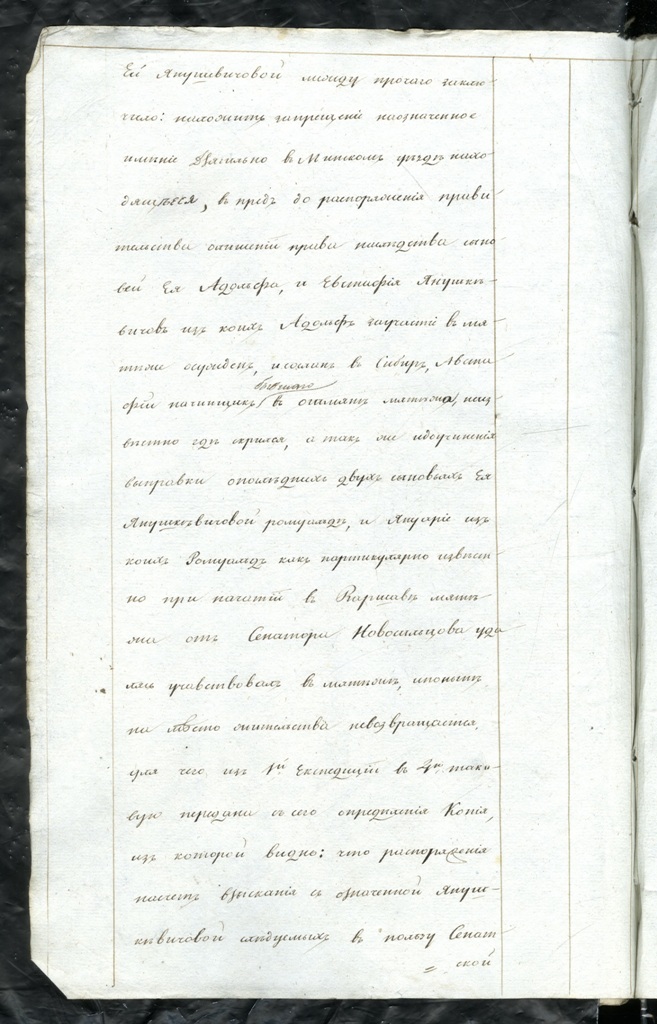 ей Янушевичовой между прочаго заклю-
чило: наложить запрещенiе наозначенное
имѣнiе Дягильно в Минскомъ уѣздѣ нахо-
дящѣеся, в предь до распоряженiя прави-
тельства олишенiи права наслѣдства сыно-
вей Ея Адольфа, и Евстафiя Янушкѣ-
вичовъ изъ коихъ Адольфъ заучастiе в мя-
тѣже осужденъ, исосланъ в Сибирь, Авста-
фiй начинщикъ бывшаго в Ошмянѣ мятежа, неиз-
вѣстно гдѣ скрылся, а такъ же обучиненiи
выправки опослѣднихъ двухъ сыновьяхъ Ея
Янушкѣвичовой ромуальдѣ, и Януарiе изъ
коихъ Ромуальдъ какъ партикулярно извѣст-
но при начатiи в Варшавѣ мятѣ-
жа отъ Сенатора Новосильцова уда-
лясь участвовалъ в мятежѣ, ипонынѣ
на мѣсто жительства невозвращается.
для чего изъ 1й Експедицiи в 2ю тако-
вую передана съ сего опредѣленiя Копiя,
изъ которой видно: что распоряженiя
насчетъ взысканiя съ означенной Януш-
кѣвичовой слѣдуемыхъ в пользу Сенат-
ской